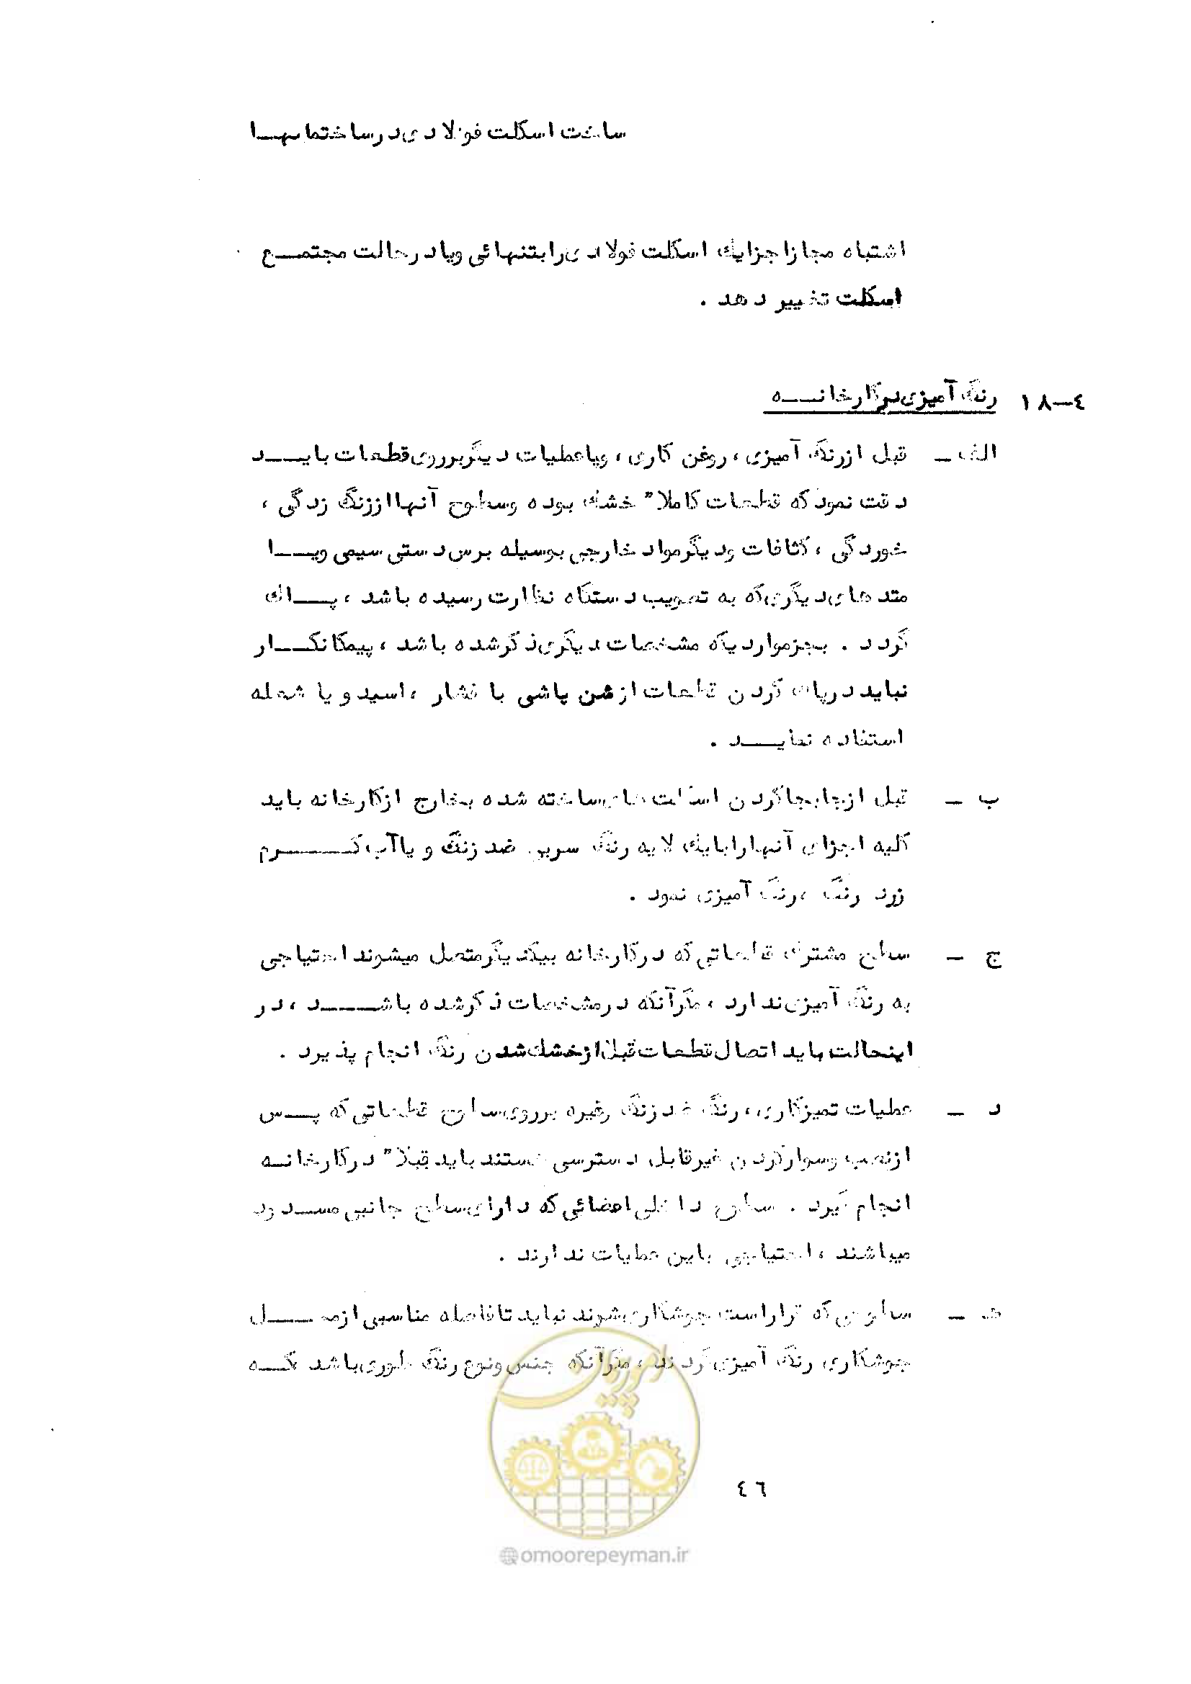 ساخت اسکلت فولادی در ساختمانهـا
اشتباه مجاز اجزا یك اسکلت فولادی را بتنهائی و یا در حالت مجتمـــع
اسکلت تغییر دهد .
٤ــ١٨ رنگ آمیزی در کارخانـــه
الف ــ قبل از رنگ آمیزی ، روغن کاری ، ویا عملیات دیگر بر روی قطعات بایـــد
دقت نمود که قطعات کاملا" خشك بوده و سطوح آنها از زنگ زدگی ،
خوردگی ، کثافات و دیگر مواد خارجی بوسیله برس دستی سیمی ویـــا
متد های دیگری که به تصویب دستگاه نظارت رسیده باشد ، پـــاك
گردد . بجز مواردیکه مشخصات دیگری ذکر شده باشد ، پیمانکـــار
نباید در پاك کردن قطعات از شن پاشی با فشار ، اسید و یا شعله
استفاده نمایـــد .
ب ــ قبل از جابجا کردن اسکلت های ساخته شده بخارج از کارخانه باید
کلیه اجزای آنها را با یك لایه رنگ سربی ضد زنگ و یا آب کـــرم
زرد رنگ ، رنگ آمیزی نمود .
ج ــ سطح مشترك قطعاتی که در کارخانه بیکدیگر متصل میشوند احتیاجی
به رنگ آمیزی ندارد ، مگر آنکه در مشخصات ذکر شده باشـــد ، در
اینحالت باید اتصال قطعات قبل از خشك شدن رنگ انجام پذیرد .
د ــ عملیات تمیزکاری ، رنگ ضد زنگ وغیره بر روی سطوح قطعاتی که پـــس
از نصب و سوار کردن غیر قابل دسترسی هستند باید قبلا" در کارخانـــه
انجام گیرد . سطوح داخلی اعضائی که دارای سطح جانبی مســدود
میباشند ، احتیاجی باین عملیات ندارند .
ه ــ سطوحی که قرار است جوشکاری شوند نباید تا فاصله مناسبی از محـــل
جوشکاری رنگ آمیزی گردند ، مگر آنکه جنس و نوع رنگ طوری باشد کـــه
امور پیمان
٤٦
@omoorepeyman.ir